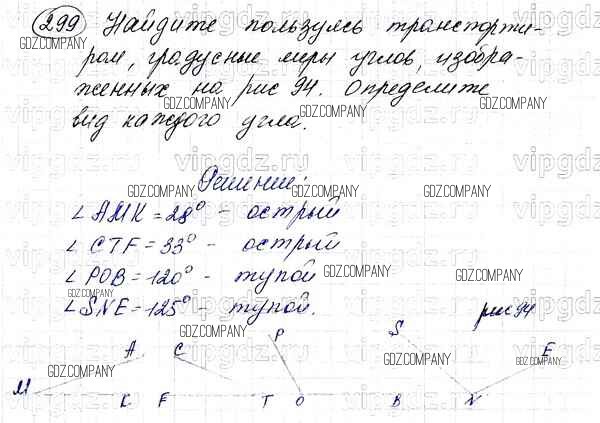 299 Найдите пользуясь транспорти-
ром, градусные меры углов, изобра-
женных на рис 94. Определите
вид каждого угла.
Решение:
∠AMK = 28° - острый
∠CTF = 33° - острый
∠POB = 120° - тупой
∠SNE = 125° - тупой.
рис 94
P S
A C E
M K F T O B N
GDZ.COMPANY
vipgdz.ru